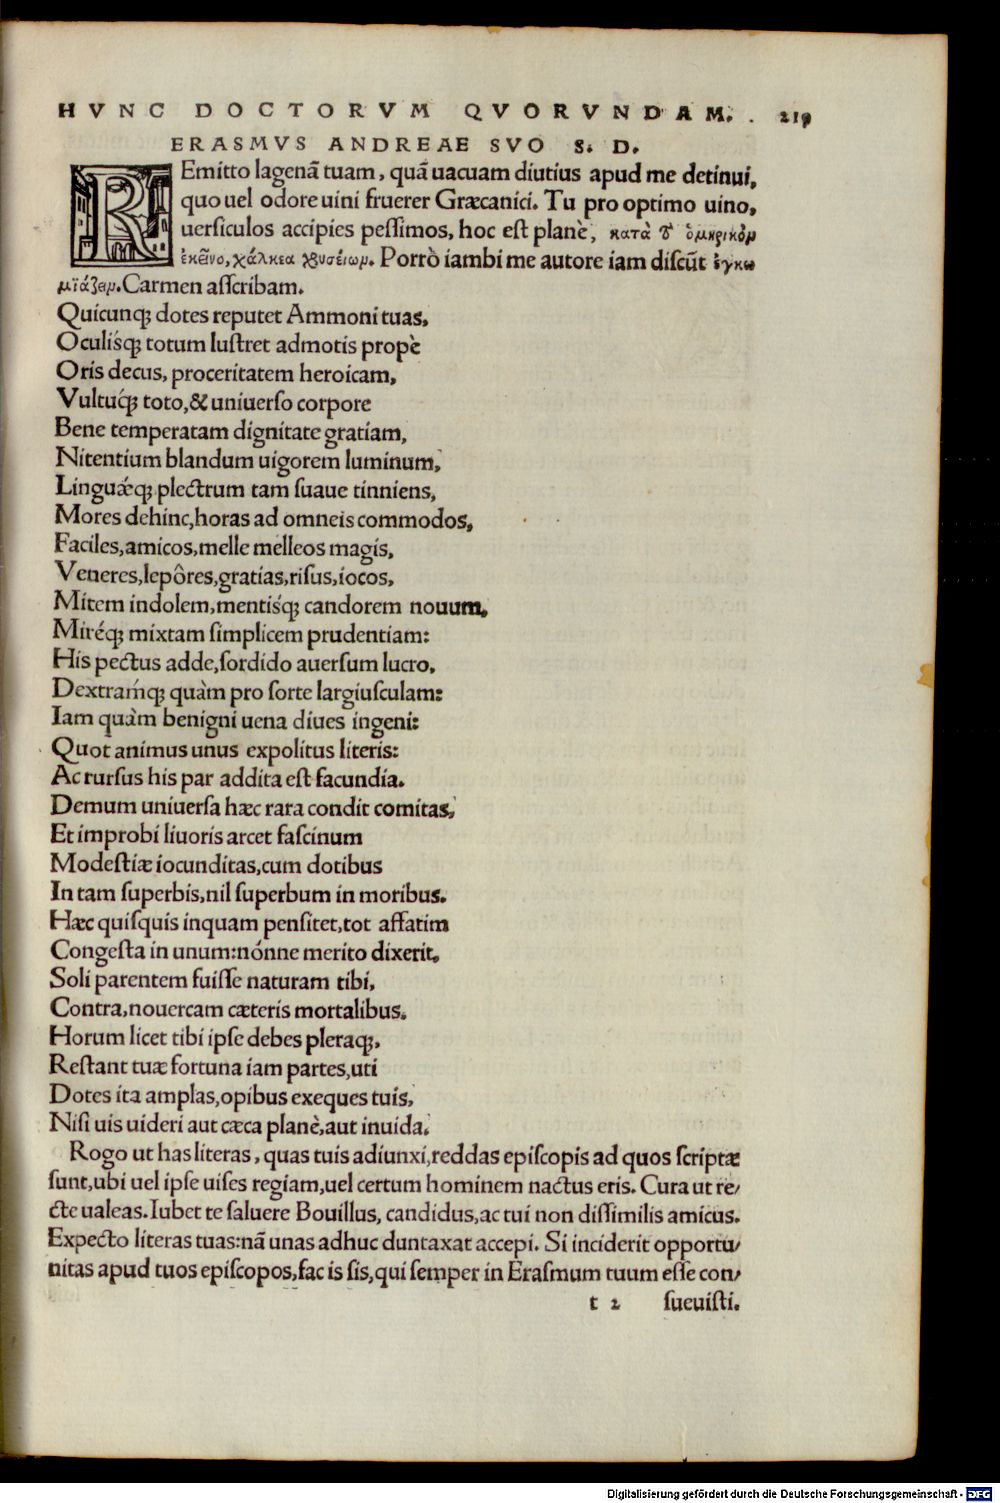 HVNC DOCTORVM QVORVNDAM. . 219
ERASMVS ANDREAE SVO S. D.
REmitto lagenã tuam, quã uacuam diutius apud me detinui,
quo uel odore uini fruerer Græcanici. Tu pro optimo uino,
uersiculos accipies pessimos, hoc est planè, κατὰ τὸ ὁμηρικὸν
ἐκεῖνο, χάλκεα χρυσείων. Porrò iambi me autore iam discũt ἐγκω
μϊάζειν. Carmen asscribam.
Quicunq; dotes reputet Ammoni tuas,
Oculisq́; totum lustret admotis propè
Oris decus, proceritatem heroicam,
Vultuq́; toto, & uniuerso corpore
Bene temperatam dignitate gratiam,
Nitentium blandum uigorem luminum,
Linguǽq; plectrum tam suaue tinniens,
Mores dehinc, horas ad omneis commodos,
Faciles, amicos, melle melleos magis,
Veneres, lepôres, gratias, risus, iocos,
Mitem indolem, mentisq́; candorem nouum,
Miréq; mixtam simplicem prudentiam:
His pectus adde, sordido auersum lucro,
Dextramq́; quàm pro sorte largiusculam:
Iam quàm benigni uena diues ingeni:
Quot animus unus expolitus literis:
Ac rursus his par addita est facundia.
Demum uniuersa hæc rara condit comitas,
Et improbi liuoris arcet fascinum
Modestiæ iocunditas, cum dotibus
In tam superbis, nil superbum in moribus.
Hæc quisquis inquam pensitet, tot affatim
Congesta in unum: nónne merito dixerit,
Soli parentem fuisse naturam tibi,
Contra, nouercam cæteris mortalibus.
Horum licet tibi ipse debes pleraq;,
Restant tuæ fortuna iam partes, uti
Dotes ita amplas, opibus exeques tuis,
Nisi uis uideri aut cæca planè, aut inuida.
Rogo ut has literas, quas tuis adiunxi, reddas episcopis ad quos scriptæ
sunt, ubi uel ipse uises regiam, uel certum hominem nactus eris. Cura ut re/
cte ualeas. Iubet te saluere Bouillus, candidus, ac tui non dissimilis amicus.
Expecto literas tuas: nã unas adhuc duntaxat accepi. Si inciderit opportu/
nitas apud tuos episcopos, fac is sis, qui semper in Erasmum tuum esse con/
t 2 sueuisti.
Digitalisierung gefördert durch die Deutsche Forschungsgemeinschaft - DFG